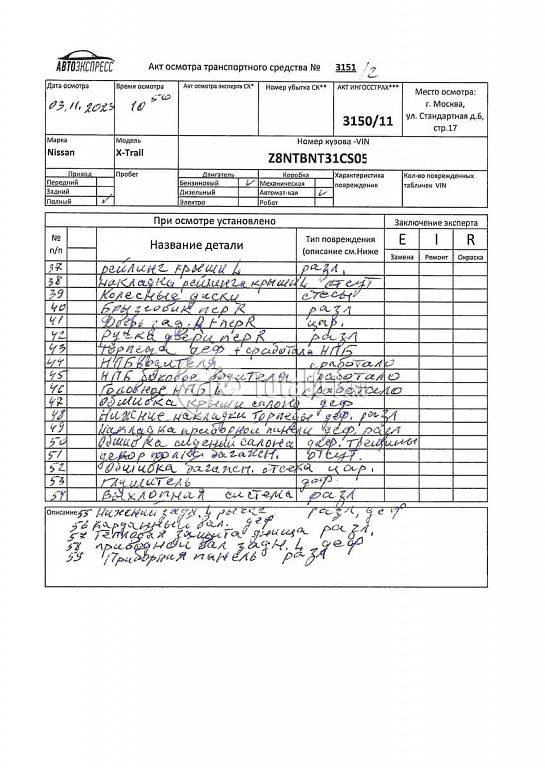 АВТОЭКСПРЕСС
Акт осмотра транспортного средства № 3151/2
Дата осмотра Время осмотра Акт осмотра эксперта СК* Номер убытка СК** АКТ ИНГОССТРАХ*** Место осмотра:
03.11.2023 10 50 3150/11 г. Москва,
ул. Стандартная д.6,
стр.17
Марка Модель Номер кузова -VIN
Nissan X-Trail Z8NTBNT31CS05
Привод Пробег Двигатель Коробка Характеристика повреждения Кол-во поврежденных табличек VIN
Передний Бензиновый ✓ Механическая
Задний Дизельный Автомат-кая ✓
Полный ✓ Электро Робот
При осмотре установлено Заключение эксперта
№ п/п Название детали Тип повреждения (описание см.Ниже E I R
Замена Ремонт Окраска
37 рейлинг крыши L разл.
38 накладка рейлинга крыши L отсут
39 Колесные диски стесы
40 Брызговик пер R разл
41 Дверь зад. R+перR цар.
42 Ручка двери перR разл
43 Торпеда деф + сработала НПБ
44 НПБ водителя сработало
45 НПБ боковое водителя сработало
46 Головное НПБ L сработало
47 Обшивка крыши салона деф
48 Нижние накладки торпеды деф. разл
49 Накладка приборной панели деф. разл
50 Обшивка сидений салона деф. трещины
51 декор полки багажн. отсут.
52 Обшивка багажн. отсека цар.
53 Глушитель деф.
54 Выхлопная система разл
Описание 55 Нижний задн. L рычаг разл, деф
56 Карданный вал. деф
57 Тепловая защита днища разл,
58 приводной вал задн. L деф
59 Приборная панель разл